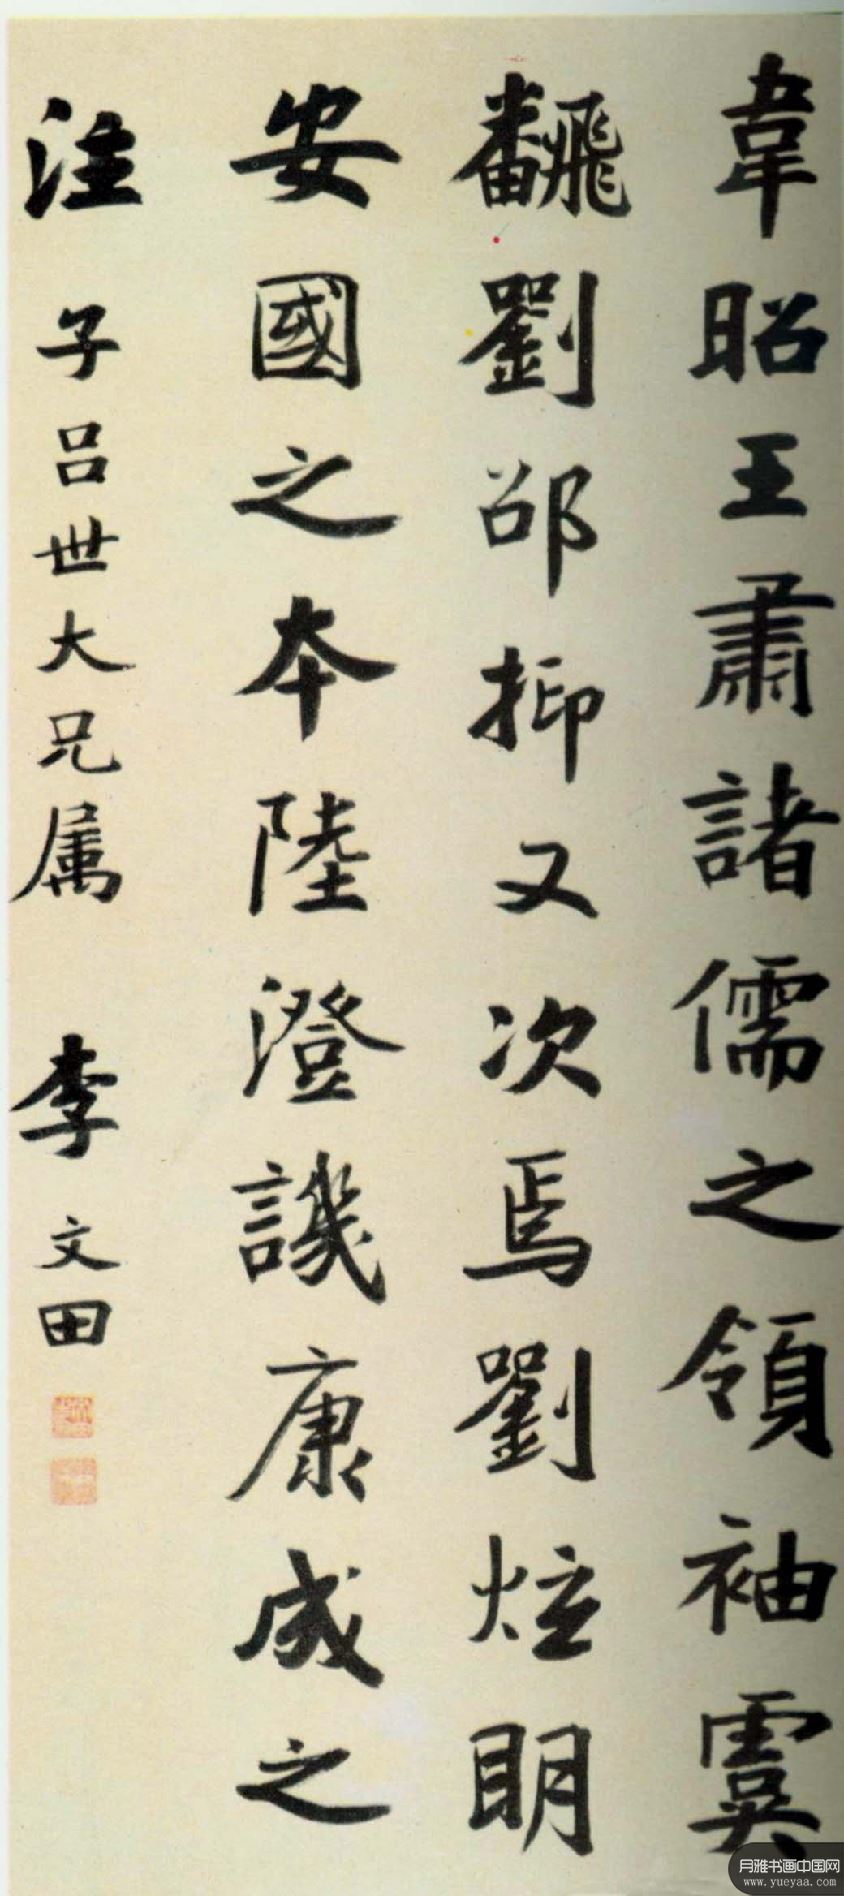 韋昭王肅諸儒之領袖虞
飜劉邵抑又次焉劉炫明
安國之本陸澄譏康成之
注 子呂世大兄属 李文田
月雅书画中国网
www.yueyaa.com